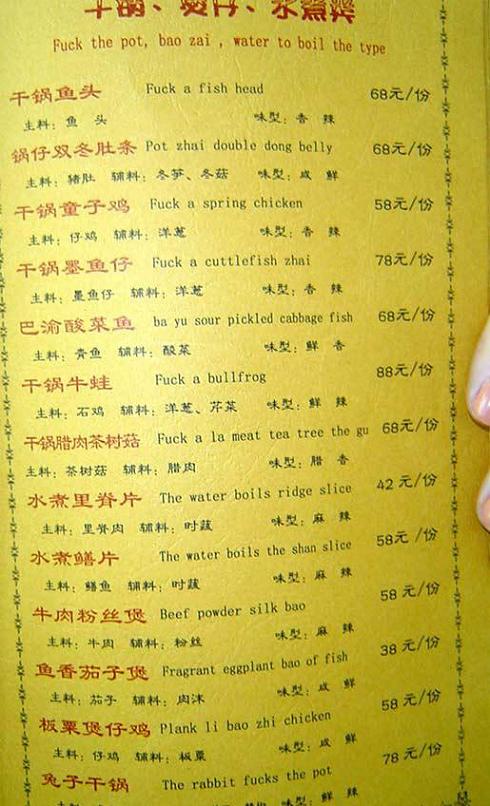 干锅、煲仔、水煮
Fuck the pot, bao zai , water to boil the type
干锅鱼头 Fuck a fish head 68元/份
主料：鱼 头 味型：香 辣
锅仔双冬肚条 Pot zhai double dong belly 68元/份
主料：猪肚 辅料：冬笋、冬菇 味型：咸 鲜
干锅童子鸡 Fuck a spring chicken 58元/份
主料：仔鸡 辅料：洋葱 味型：香 辣
干锅墨鱼仔 Fuck a cuttlefish zhai 78元/份
主料：墨鱼仔 辅料：洋葱 味型：香 辣
巴渝酸菜鱼 ba yu sour pickled cabbage fish 68元/份
主料：青鱼 辅料：酸菜 味型：鲜 香
干锅牛蛙 Fuck a bullfrog 88元/份
主料：石鸡 辅料：洋葱、芹菜 味型：鲜 辣
干锅腊肉茶树菇 Fuck a la meat tea tree the gu 68元/份
主料：茶树菇 辅料：腊肉 味型：腊 香
水煮里脊片 The water boils ridge slice 42元/份
主料：里脊肉 辅料：时蔬 味型：麻 辣
水煮鳝片 The water boils the shan slice 58元/份
主料：鳝鱼 辅料：时蔬 味型：麻 辣
牛肉粉丝煲 Beef powder silk bao 58元/份
主料：牛肉 辅料：粉丝 味型：麻 辣
鱼香茄子煲 Fragrant eggplant bao of fish 38元/份
主料：茄子 辅料：肉沫 味型：咸 鲜
板栗煲仔鸡 Plank li bao zhi chicken 58元/份
主料：仔鸡 辅料：板栗 味型：咸 鲜
兔子干锅 The rabbit fucks the pot 78元/份